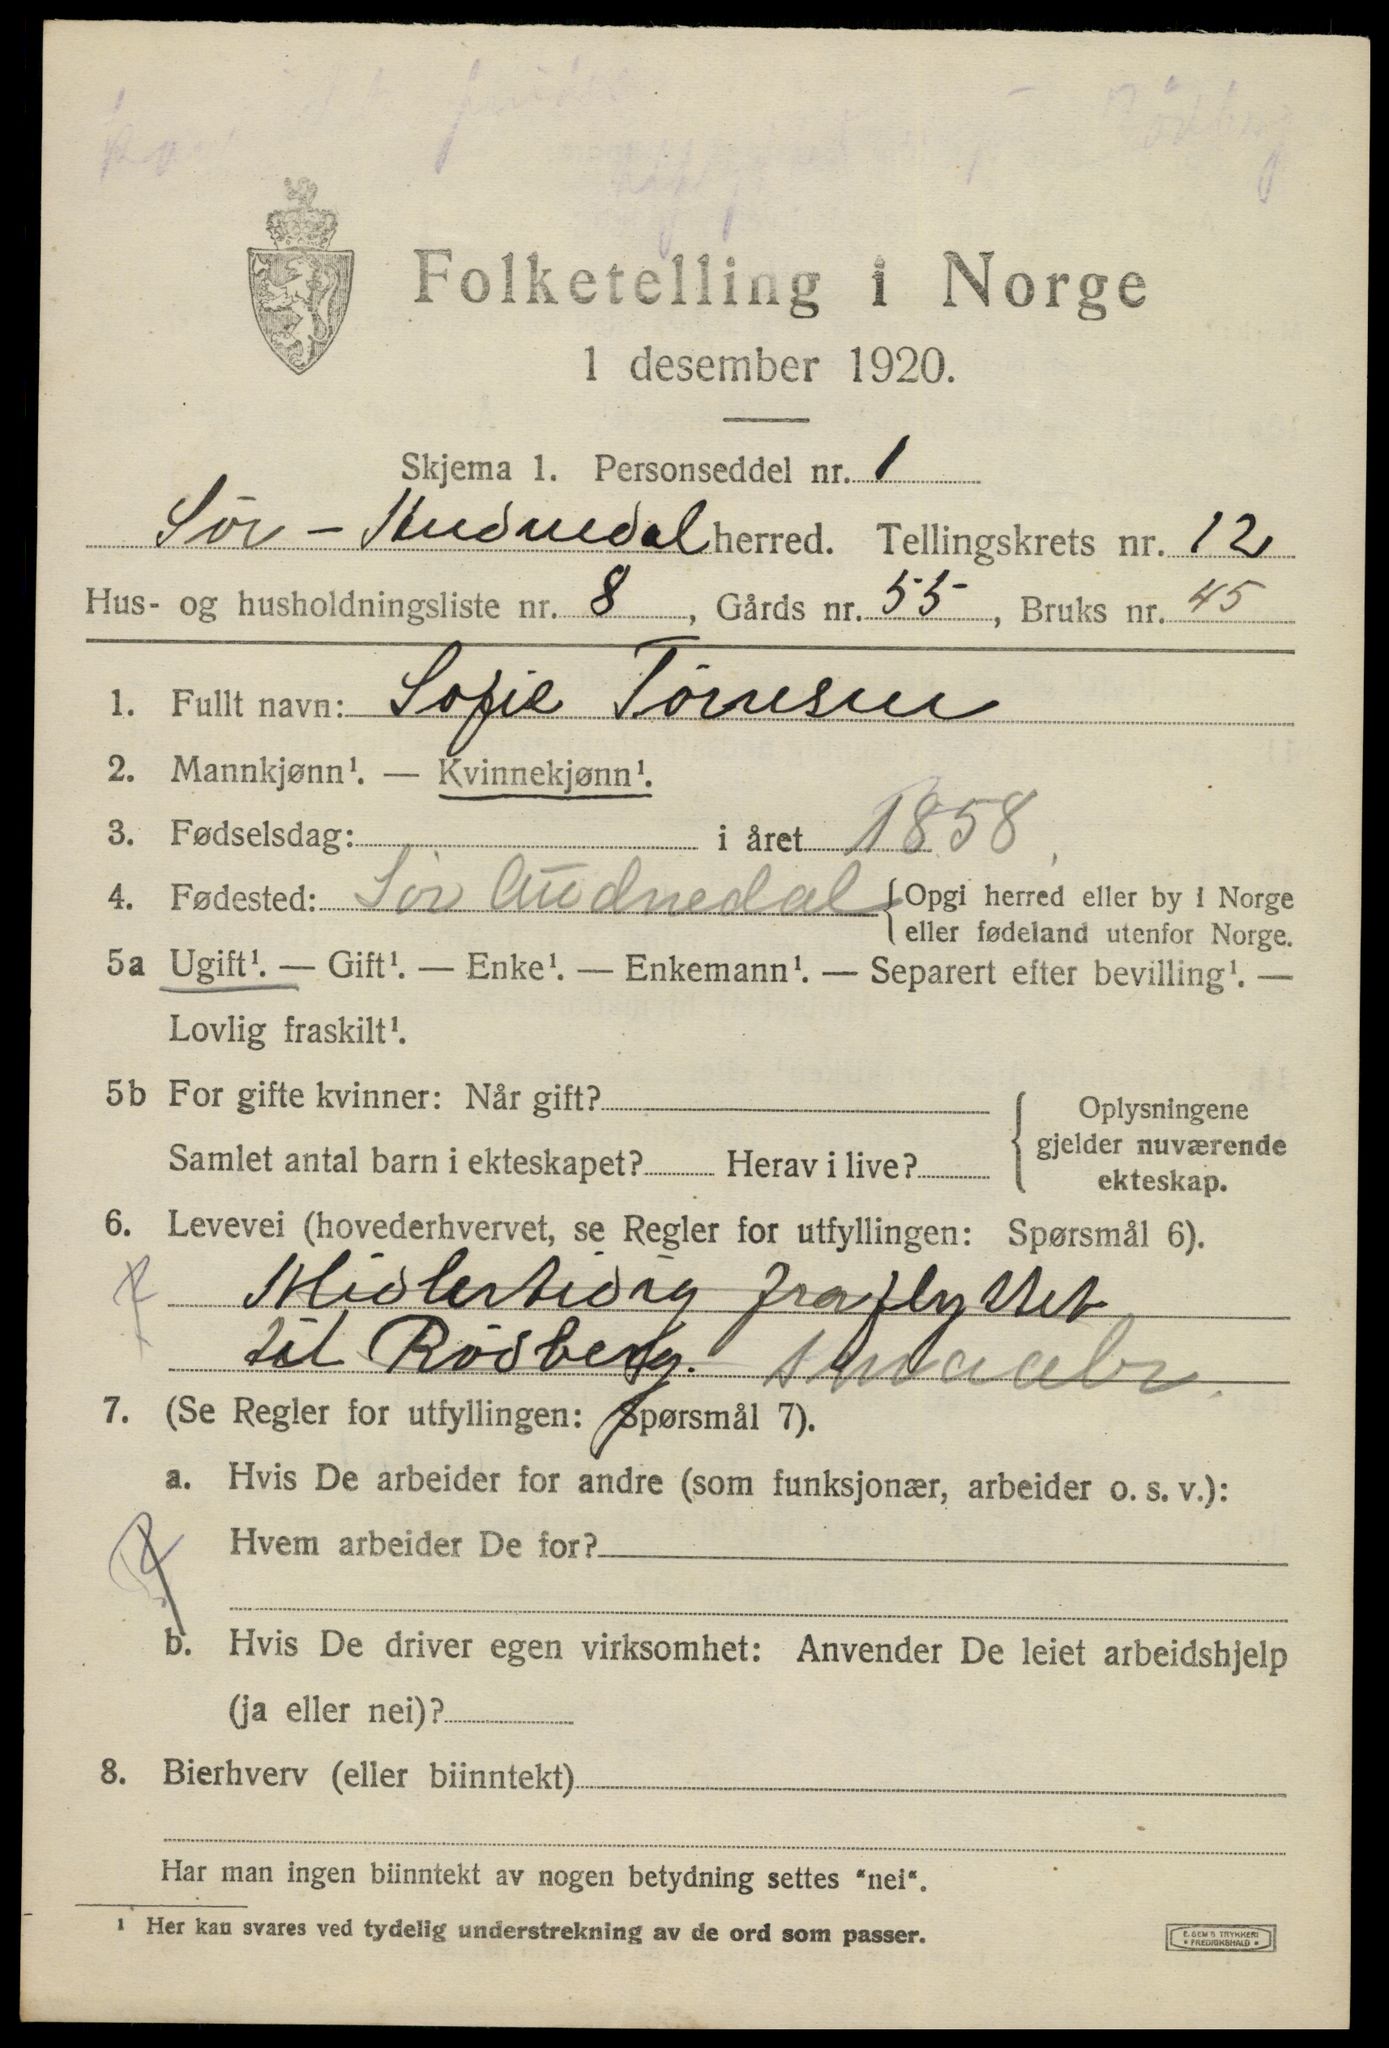 Folketelling i Norge
1 desember 1920.
Skjema 1. Personseddel nr. 1
Sör - Audnedal herred. Tellingskrets nr. 12
Hus- og husholdningsliste nr. 8, Gårds nr. 55, Bruks nr. 45
1. Fullt navn: Sofie Törnesen
2. Mannkjønn¹. — Kvinnekjønn¹.
3. Fødselsdag: i året 1858.
4. Fødested: Sör Audnedal {Opgi herred eller by i Norge
eller fødeland utenfor Norge.
5a Ugift¹. — Gift¹. — Enke¹. — Enkemann¹. — Separert efter bevilling¹. —
Lovlig fraskilt¹.
5b For gifte kvinner: Når gift?
Samlet antal barn i ekteskapet? Herav i live?
Oplysningene
gjelder nuværende
ekteskap.
6. Levevei (hovederhvervet, se Regler for utfyllingen: Spørsmål 6).
Midlertidig fraflyttet
til Rödberg. smaabr.
7. (Se Regler for utfyllingen: Spørsmål 7).
a. Hvis De arbeider for andre (som funksjonær, arbeider o. s. v.):
Hvem arbeider De for?
b. Hvis De driver egen virksomhet: Anvender De leiet arbeidshjelp
(ja eller nei)?
8. Bierhverv (eller biinntekt)
Har man ingen biinntekt av nogen betydning settes "nei".
¹ Her kan svares ved tydelig understrekning av de ord som passer.
E. SEM'S TRYKKERI
• FREDRIKSHALD •